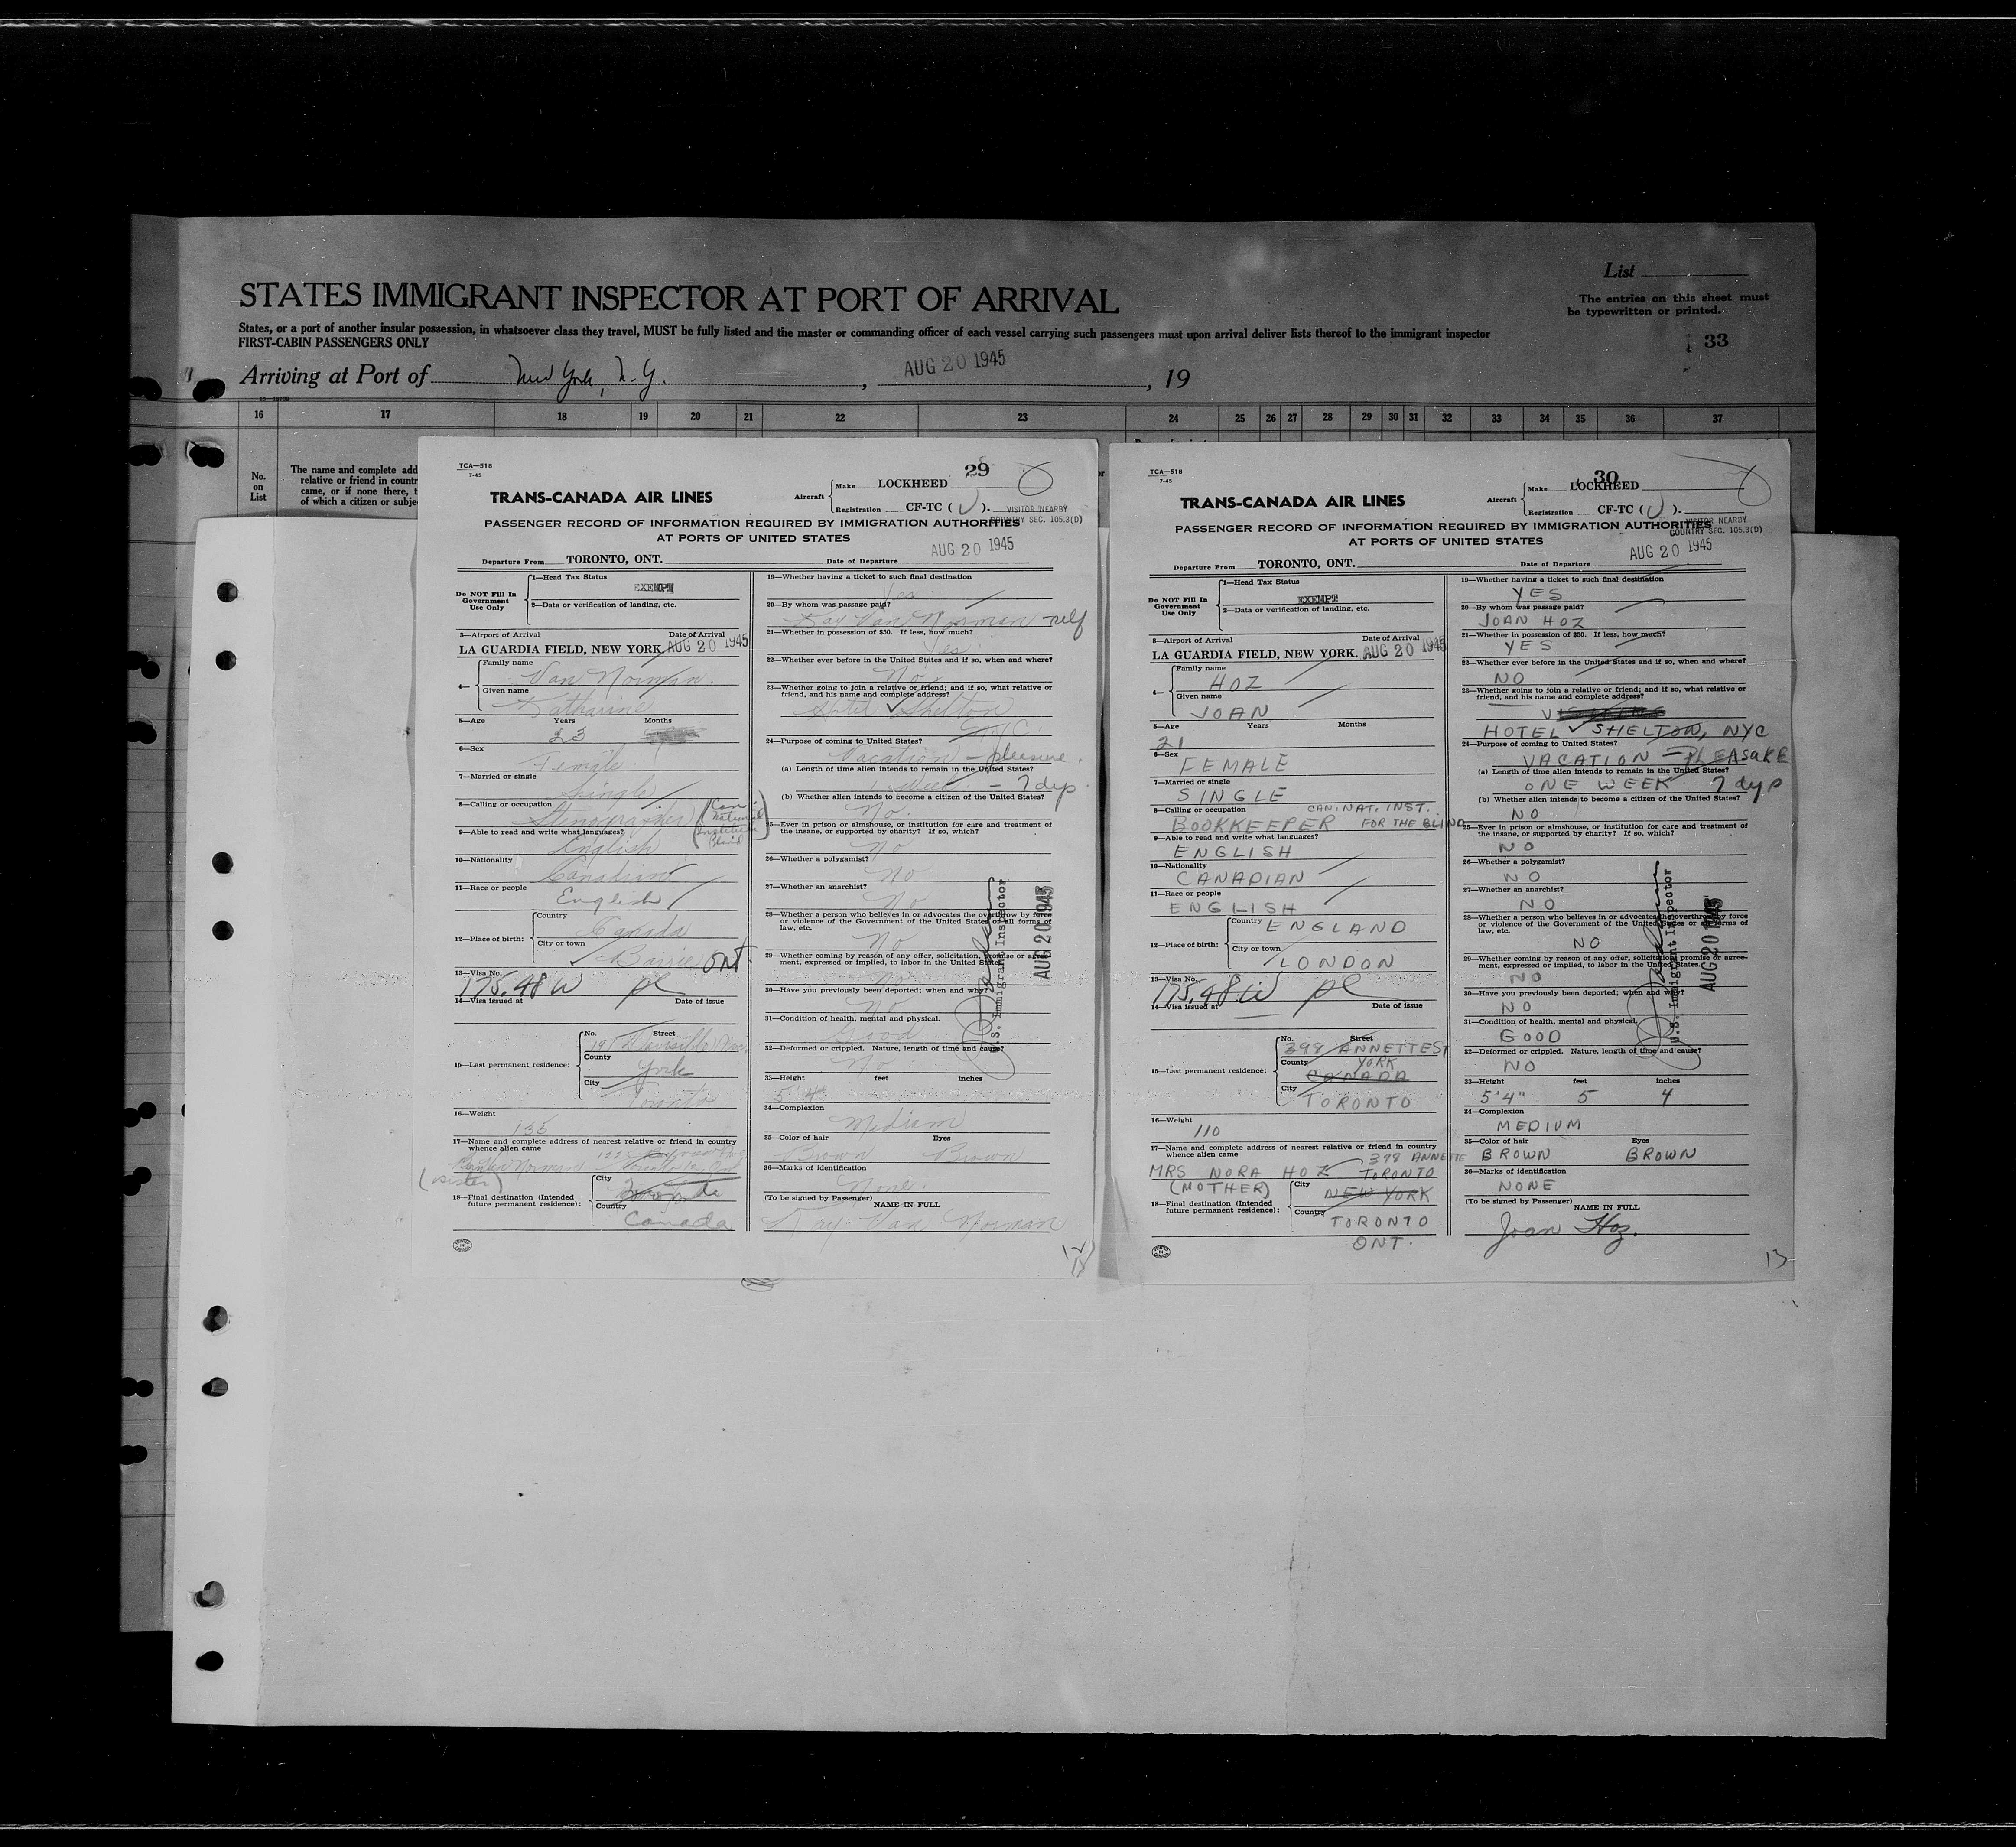 List
STATES IMMIGRANT INSPECTOR AT PORT OF ARRIVAL
The entries on this sheet must
be typewritten or printed.
States, or a port of another insular possession, in whatsoever class they travel, MUST be fully listed and the master or commanding officer of each vessel carrying such passengers must upon arrival deliver lists thereof to the immigrant inspector
FIRST-CABIN PASSENGERS ONLY
33
Arriving at Port of New York, N.Y. , AUG 20 1945 , 19
16 17 18 19 20 21 22 23 24 25 26 27 28 29 30 31 32 33 34 35 36 37
No.
on
List
The name and complete add
relative or friend in countr
came, or if none there, t
of which a citizen or subje
TCA—518
7-45
29
TRANS-CANADA AIR LINES
Aircraft
Make LOCKHEED
Registration CF-TC ( U ).
VISITOR NEARBY
COUNTRY SEC. 105.3(D)
PASSENGER RECORD OF INFORMATION REQUIRED BY IMMIGRATION AUTHORITIES
AT PORTS OF UNITED STATES
AUG 20 1945
Departure From TORONTO, ONT. Date of Departure
Do NOT Fill In
Government
Use Only
1—Head Tax Status EXEMPT
2—Data or verification of landing, etc.
3—Airport of Arrival Date of Arrival
LA GUARDIA FIELD, NEW YORK. AUG 20 1945
4—
Family name
Van Norman
Given name
Katharine
5—Age Years Months
23
6—Sex
Female
7—Married or single
Single
8—Calling or occupation
Stenographer (Can. National Institute Blind)
9—Able to read and write what languages?
English
10—Nationality
Canadian
11—Race or people
English
12—Place of birth:
Country
Canada
City or town
Barrie ONT
13—Visa No.
175.48 W pl
14—Visa issued at Date of issue
15—Last permanent residence:
No. Street
Davisville Ave.
County
York
City
Toronto
16—Weight
135
17—Name and complete address of nearest relative or friend in country
whence alien came
Van Norman
Toronto
(sister)
18—Final destination (Intended
future permanent residence):
City
Toronto
Country
Canada
19—Whether having a ticket to such final destination
Yes
20—By whom was passage paid?
Kay Van Norman - self
21—Whether in possession of $50. If less, how much?
Yes
22—Whether ever before in the United States and if so, when and where?
No
23—Whether going to join a relative or friend; and if so, what relative or
friend, and his name and complete address?
Hotel Shelton
NYC
24—Purpose of coming to United States?
Vacation - pleasure.
(a) Length of time alien intends to remain in the United States?
Week - 7 dys
(b) Whether alien intends to become a citizen of the United States?
No.
25—Ever in prison or almshouse, or institution for care and treatment of
the insane, or supported by charity? If so, which?
No
26—Whether a polygamist?
No
27—Whether an anarchist?
No
28—Whether a person who believes in or advocates the overthrow by force
or violence of the Government of the United States or all forms of
law, etc.
No
29—Whether coming by reason of any offer, solicitation, promise or agree-
ment, expressed or implied, to labor in the United States.
No
30—Have you previously been deported; when and why?
No
31—Condition of health, mental and physical.
Good
32—Deformed or crippled. Nature, length of time and cause?
No
33—Height feet inches
5'4"
34—Complexion
Medium
35—Color of hair Eyes
Brown Brown
36—Marks of identification
None.
(To be signed by Passenger) NAME IN FULL
Kay Van Norman
U.S. Immigrant Inspector
AUG 20 1945
12
TCA—518
7-45
30
TRANS-CANADA AIR LINES
Aircraft
Make LOCKHEED
Registration CF-TC ( U ).
VISITOR NEARBY
COUNTRY SEC. 105.3(D)
PASSENGER RECORD OF INFORMATION REQUIRED BY IMMIGRATION AUTHORITIES
AT PORTS OF UNITED STATES
AUG 20 1945
Departure From TORONTO, ONT. Date of Departure
Do NOT Fill In
Government
Use Only
1—Head Tax Status
EXEMPT
2—Data or verification of landing, etc.
3—Airport of Arrival Date of Arrival
LA GUARDIA FIELD, NEW YORK. AUG 20 1945
4—
Family name
HOZ
Given name
JOAN
5—Age Years Months
21
6—Sex
FEMALE
7—Married or single
SINGLE
8—Calling or occupation CAN. NAT. INST.
BOOKKEEPER FOR THE BLIND
9—Able to read and write what languages?
ENGLISH
10—Nationality
CANADIAN
11—Race or people
ENGLISH
12—Place of birth:
Country
ENGLAND
City or town
LONDON
13—Visa No.
175.48 W pl
14—Visa issued at Date of issue
15—Last permanent residence:
No. Street
398 ANNETTE ST
County YORK
CANADA
City
TORONTO
16—Weight
110
17—Name and complete address of nearest relative or friend in country
whence alien came 398 ANNETTE
MRS NORA HOZ TORONTO
(MOTHER)
18—Final destination (Intended
future permanent residence):
City
NEW YORK
Country
TORONTO
ONT.
19—Whether having a ticket to such final destination
YES
20—By whom was passage paid?
JOAN HOZ
21—Whether in possession of $50. If less, how much?
YES
22—Whether ever before in the United States and if so, when and where?
NO
23—Whether going to join a relative or friend; and if so, what relative or
friend, and his name and complete address?
HOTEL SHELTON, NYC
24—Purpose of coming to United States?
VACATION - PLEASURE
(a) Length of time alien intends to remain in the United States?
ONE WEEK 7 dys
(b) Whether alien intends to become a citizen of the United States?
NO
25—Ever in prison or almshouse, or institution for care and treatment of
the insane, or supported by charity? If so, which?
NO
26—Whether a polygamist?
NO
27—Whether an anarchist?
NO
28—Whether a person who believes in or advocates the overthrow by force
or violence of the Government of the United States or all forms of
law, etc.
NO
29—Whether coming by reason of any offer, solicitation, promise or agree-
ment, expressed or implied, to labor in the United States.
NO
30—Have you previously been deported; when and why?
NO
31—Condition of health, mental and physical.
GOOD
32—Deformed or crippled. Nature, length of time and cause?
NO
33—Height feet inches
5'4" 5 4
34—Complexion
MEDIUM
35—Color of hair Eyes
BROWN BROWN
36—Marks of identification
NONE
(To be signed by Passenger)
NAME IN FULL
Joan Hoz.
U.S. Immigrant Inspector
AUG 20 1945
13